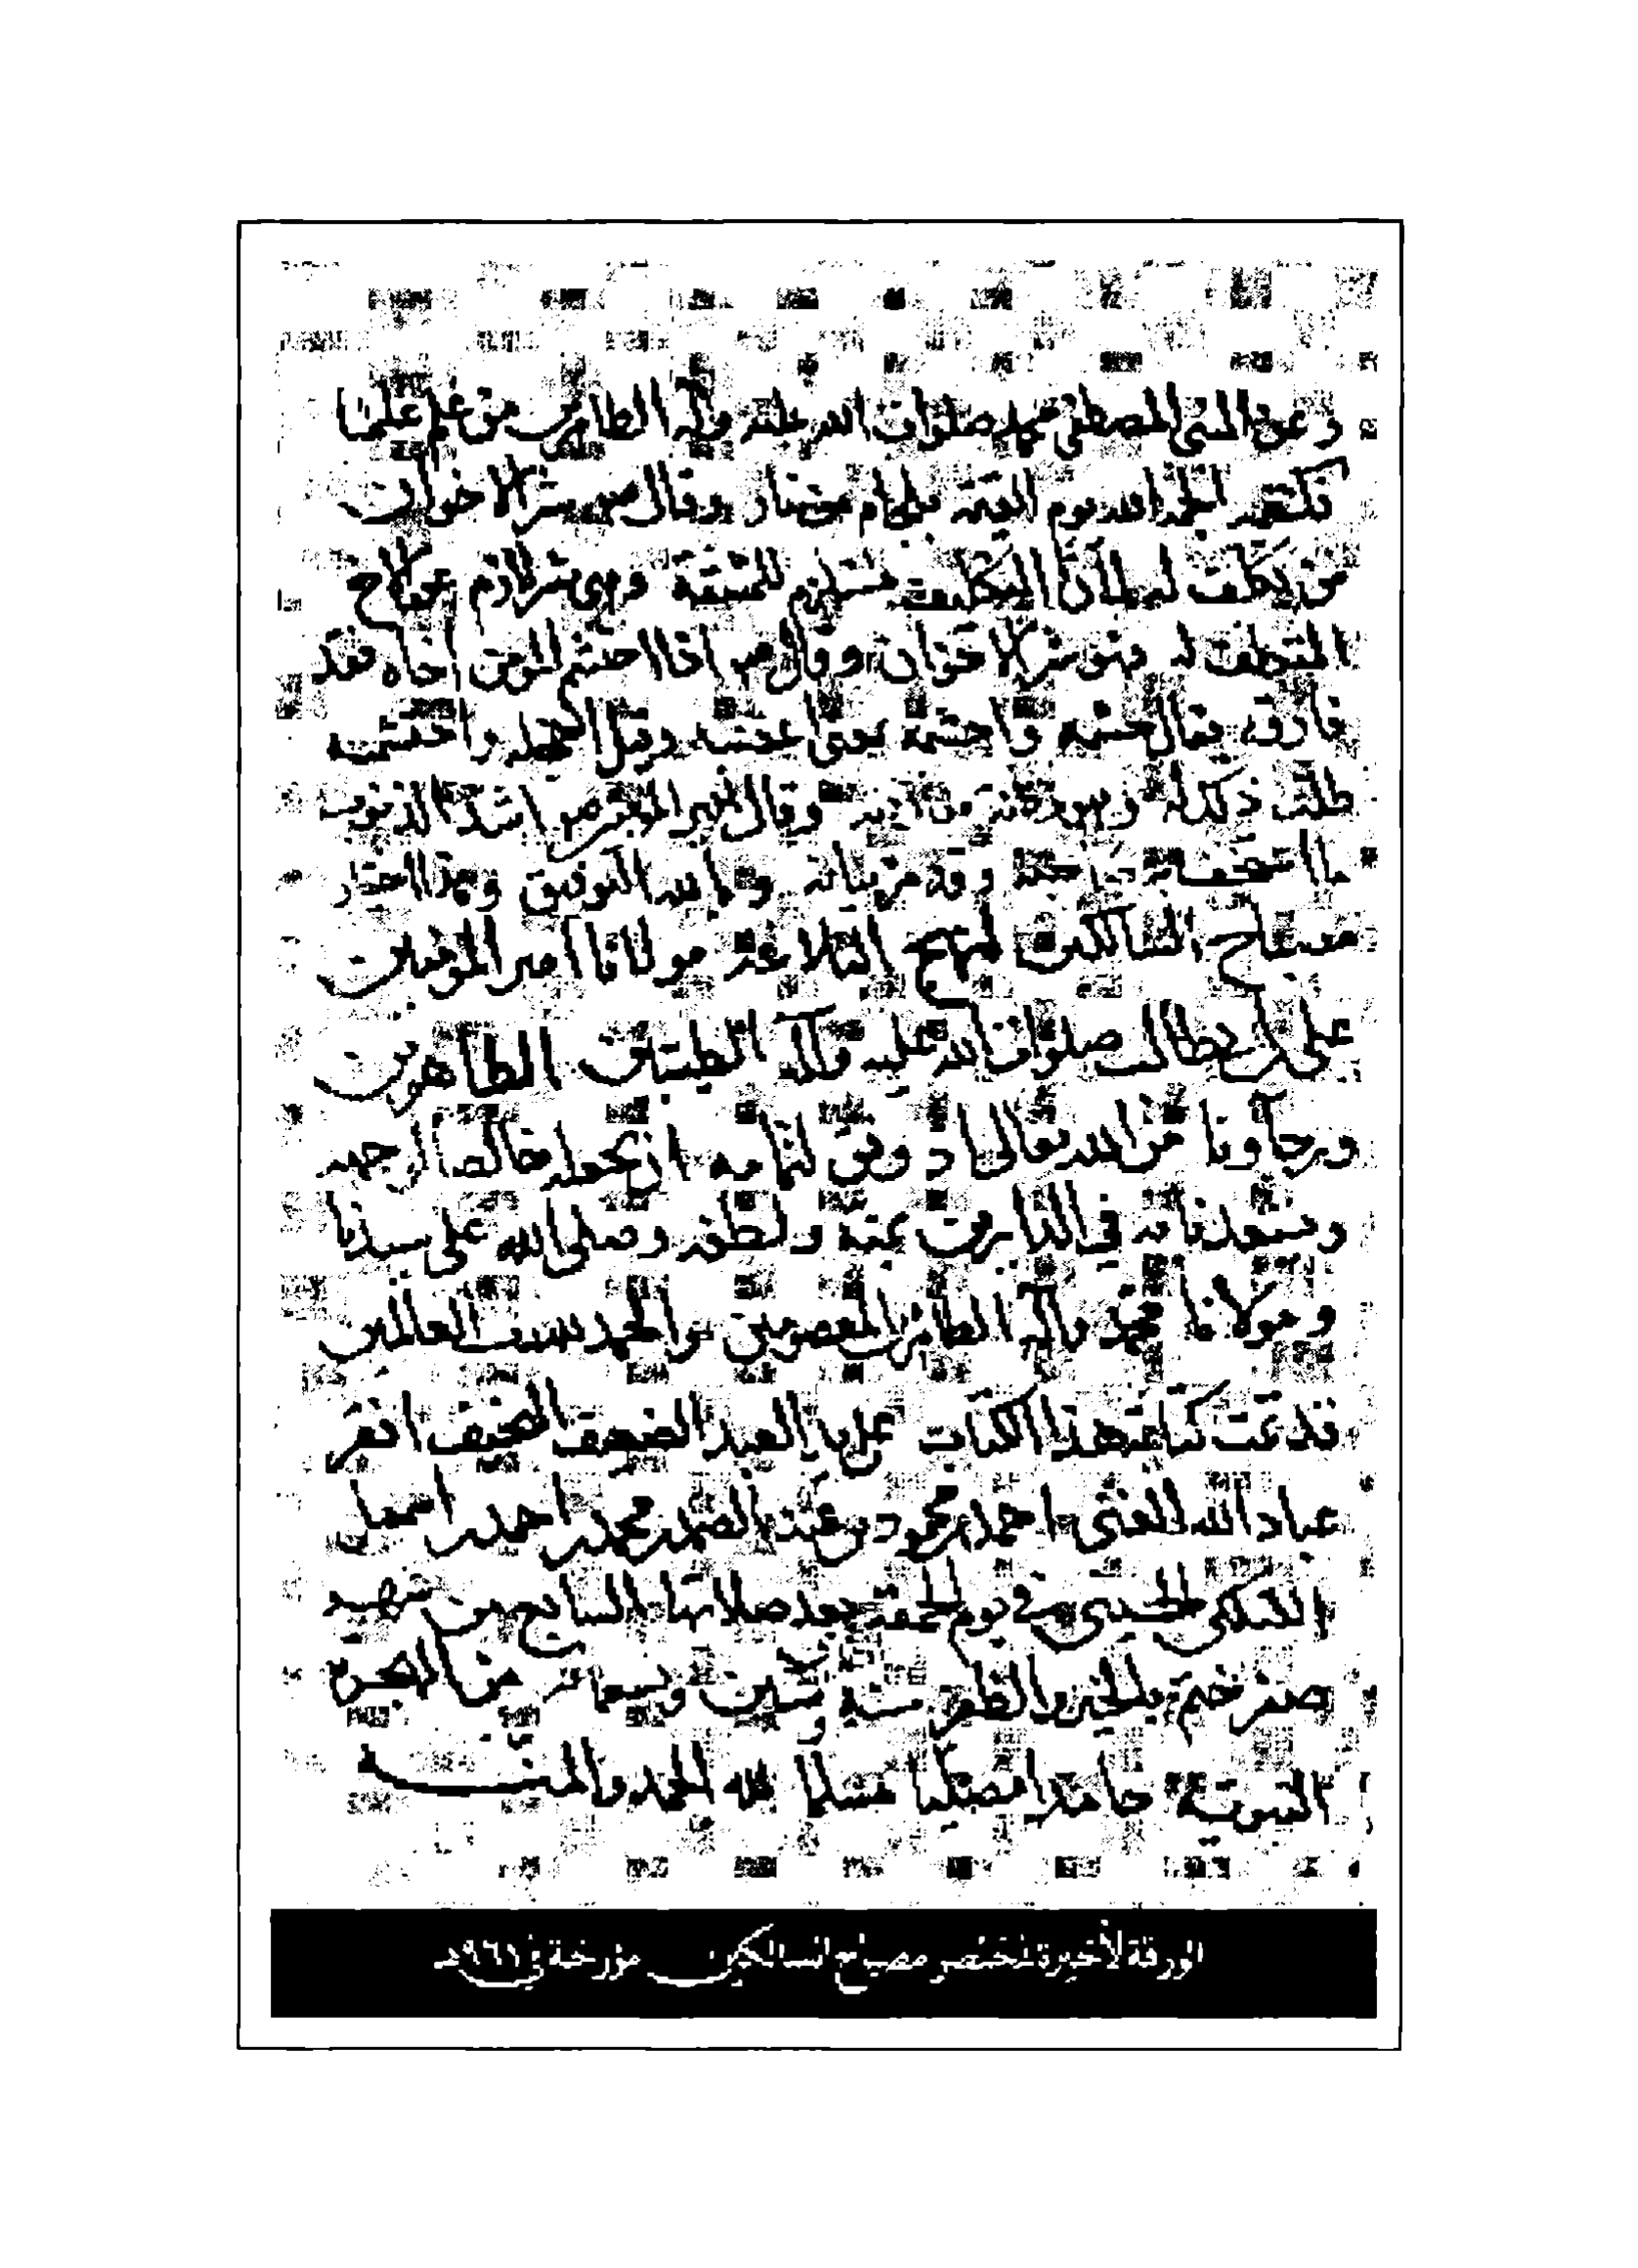 وعن النبى المصطفى محمد صلوات الله عليه وآله الطاهرين من علم علما
فكتمه الجمه الله يوم القيمة بلجام من نار وقال ص شر الاخوان
من تكلف له لان التكليف مستلزم للمشقة وهى شر لازم عن الاخ
المتكلف له فهو شر الاخوان وقال ص اذا احتشم المومن اخاه فقد
فارقه يقال حشمه واحشمه بمعنى اغضبه وقيل اخجله واحتشمه
طلب ذلك له وهو مظنة مفارقته وقال اشد الذنوب
ما استخف به صاحبه وقد مر بيانه وبالله التوفيق وهذا اختيار
مصباح السالكين لنهج البلاغة مولانا امير المؤمنين
على بن ابي طالب صلوات الله عليه وآله الطيبين الطاهرين
ورجاؤنا من الله تعالى اذ وفق لتمامه ان يجعله خالصا لوجهه
ويسعدنا به في الدارين بمنه ولطفه وصلى الله على سيدنا
ومولانا محمد وآله الطاهرين المعصومين والحمد لله رب العالمين
قد تمت كتابة هذا الكتاب على يد العبد الضعيف النحيف افقر
عباد الله الغنى احمد بن محمود بن عبد الصمد بن محمد بن احمد بن اسمعيل
الحسينى في يوم الجمعة بعد صلاتها السابع من شهر
صفر ختم بالخير والظفر سنة ستين وتسعمائة من الهجرة
النبوية حامدا مصليا مسلما لله الحمد والمنة
الورقة الأخيرة لمختصر مصباح السالكين مؤرخة في ٩٦٦هـ